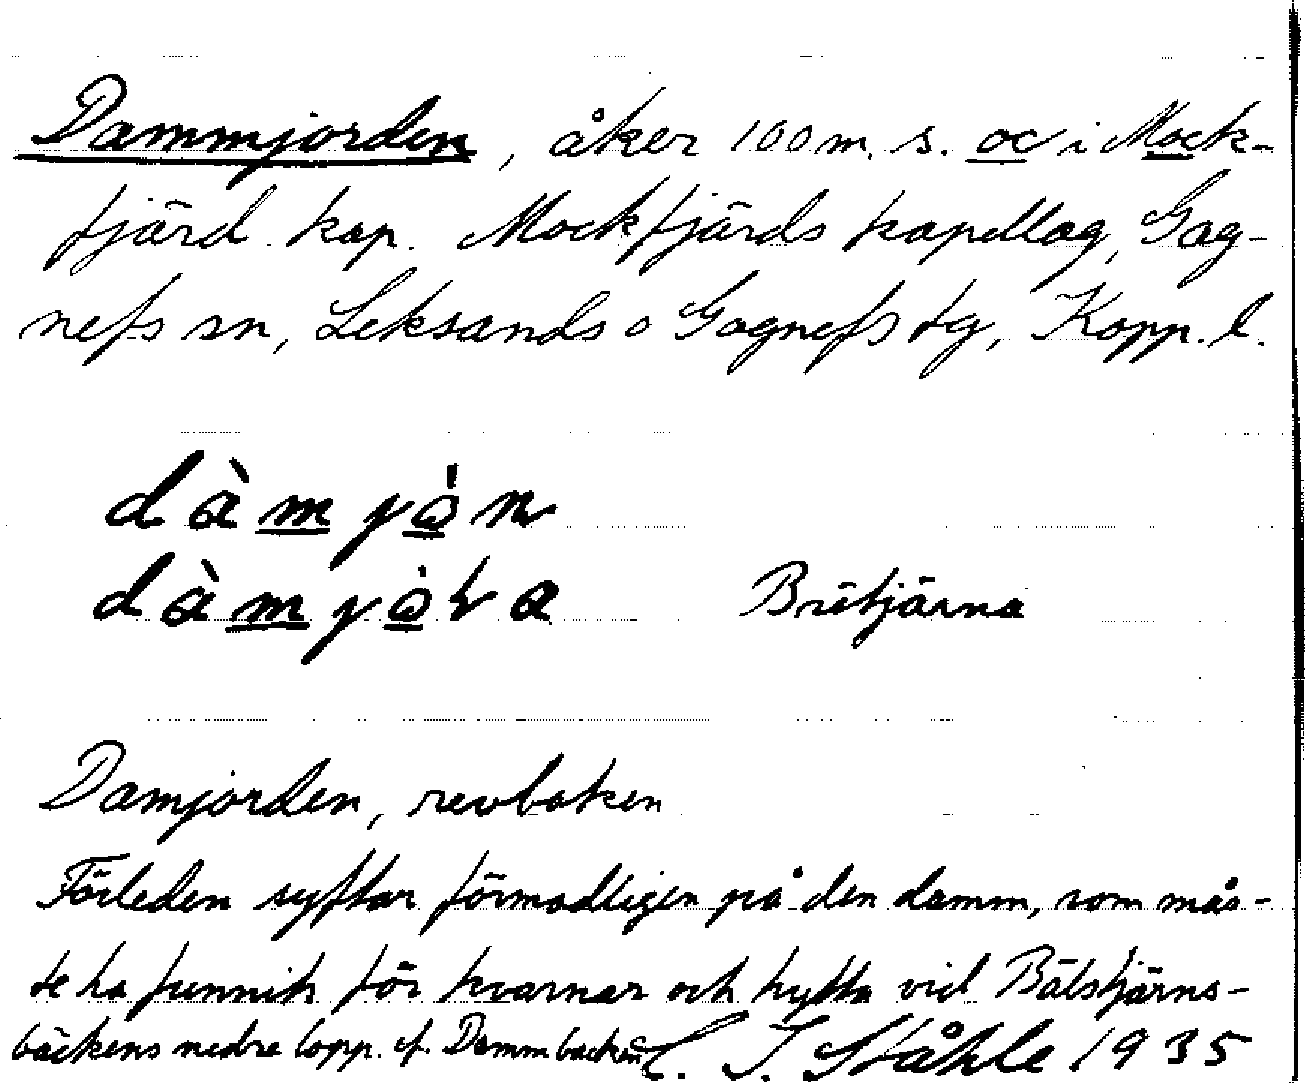 Dammjorden, åker 100 m. s. oc i Mock-
fjärd kap. Mockfjärds kapellag, Gag-
nefs sn, Leksands o Gagnefs tg, Kopp. l.
dàmjòn
dàmjòɽa Brötjärna
Damjorden, revboken
Förleden syftar förmodligen på den damm, som mås-
te ha funnits för kvarnar och hytta vid Båtstjärns-
bäckens nedre lopp. cf. Dammbacken C. I. Ståhle 1935